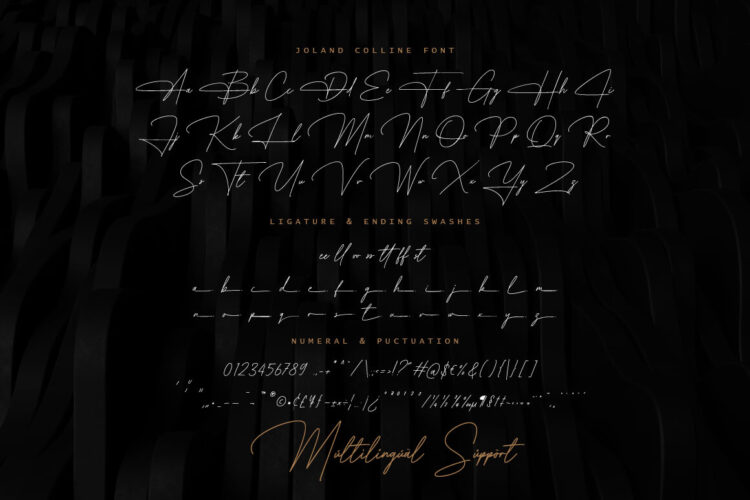 JOLAND COLLINE FONT
Aa Bb Cc Dd Ee Ff Gg Hh Ii
Jj Kk Ll Mm Nn Oo Pp Qq Rr
Ss Tt Uu Vv Ww Xx Yy Zz
LIGATURE & ENDING SWASHES
ee ll or rr tt ff st
a b c d e f g h i j k l m
n o p q r s t u v w x y z
NUMERAL & PUCTUATION
0123456789 #@$€%&(){|\}[]
Múltilingúál Súppórt